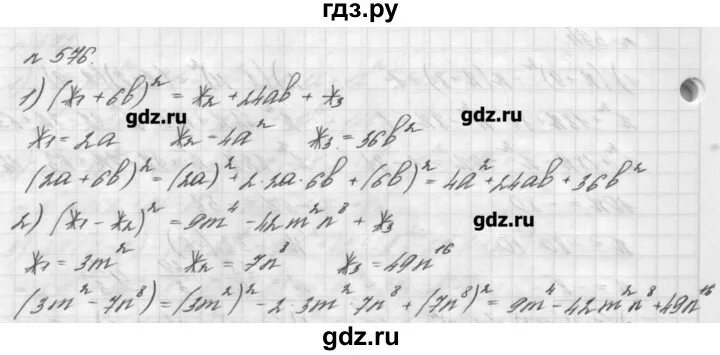 гдз.ру
n 576.
1) (ж₁ + 6b)² = ж₂ + 24ab + ж₃
gdz.ru gdz.ru
ж₁ = 2a ж₂ = 4a² ж₃ = 36b²
(2a + 6b)² = (2a)² + 2 · 2a · 6b + (6b)² = 4a² + 24ab + 36b²
2) (ж₁ - ж₂)² = 9m⁴ - 42m²n⁸ + ж₃
gdz.ru
ж₁ = 3m² ж₂ = 7n⁸ ж₃ = 49n¹⁶
(3m² - 7n⁸) = (3m²)² - 2 · 3m² · 7n⁸ + (7n⁸)² = 9m⁴ - 42m²n⁸ + 49n¹⁶
gdz.ru